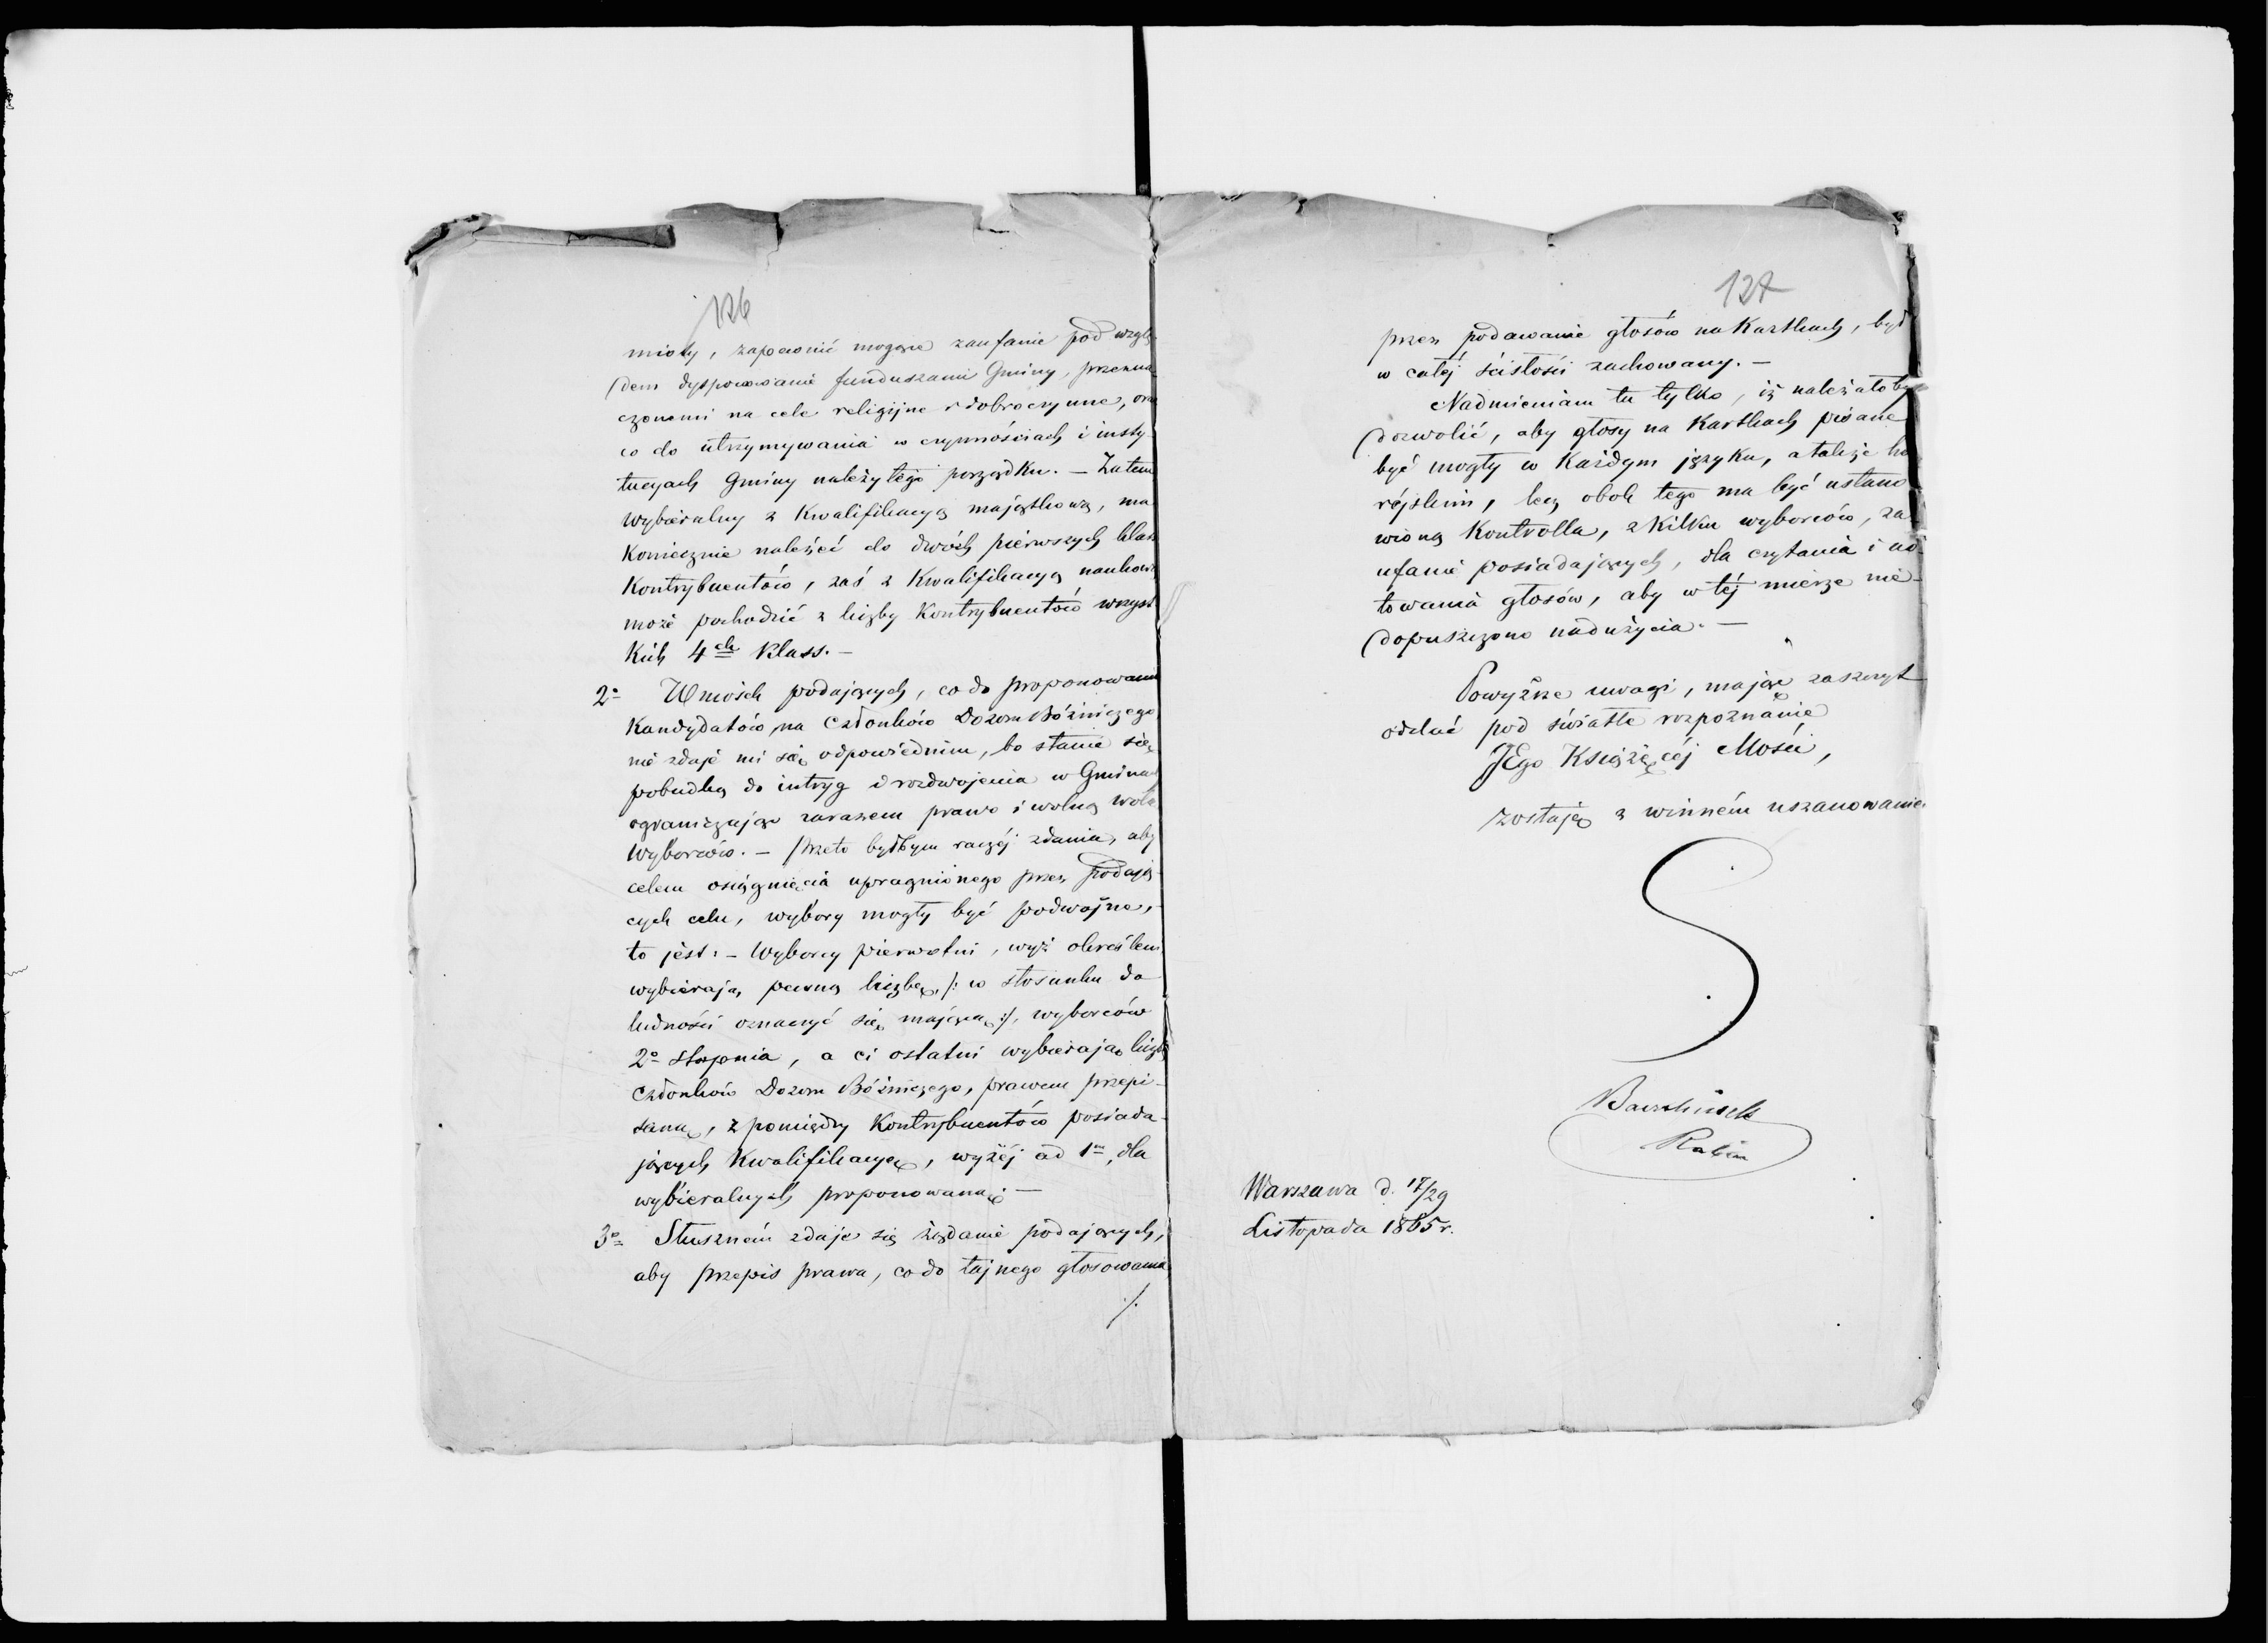 126
mioty, zapewnić mogące zaufanie pod wzglę-
dem dysponowanie funduszami Gminy, przezna-
czonemi na cele religijne i dobroczynne, oraz
co do utrzymywania w czynnościach i insty-
tucyach Gminy należytego porządku. — Zatem
wybieralny z Kwalifikacyą majątkową, ma
Koniecznie należeć do dwóch pierwszych klass
Kontrybuentów, zaś z Kwalifikacyą naukową
może pochodzić z liczby Kontrybuentów wszyst
Kich 4ch Klass. —
2o Wniosek podających, co do proponowania
Kandydatów, na Członków Dozoru Bóżniczego
nie zdaje mi się odpowiednim, bo stanie się
pobudką do intryg i rozdwojenia w Gminach
ograniczając zarazem prawo i wolną wolę
Wyborców. — Przeto byłbym raczéj zdania, aby
celem osiągnięcia upragnionego przez podają-
cych celu, wybory mogły być podwójne, -
to jest: - Wyborcy pierwotni, wyż określeni
wybierają, pewną liczbę, /: w stosunku do
ludności oznaczyć się mającą :/, wyborców
2o stopnia, a ci ostatni wybierają liczbę
Członków Dozoru Bóżniczego, prawem przepi-
saną, z pomiędzy Kontrybuentów posiada-
jących Kwalifikacyę, wyżéj ad 1m, dla
wybieralnych proponowaną. —
3o Słuszném zdaje się żądanie podających,
aby przepis prawa, co do tajnego głosowania
./.
127
przez podawanie głosów na Kartkach, był
w całéj ścisłości zachowany. —
Nadmieniam tu tylko, iż należałoby
dozwolić, aby głosy na Kartkach pisane
być mogły w Każdym języku, a także he
rájskim, lecz obok tego ma być ustano
wioną Kontrolla, z Kilku wyborców, za-
ufanie posiadających, dla czytania i no-
towania głosów, aby w téj mierze nie-
dopuszczono nadużycia. —
Powyższe uwagi, mając zaszczyt
oddać pod światłe rozpoznanie
JEgo Książęcéj Mości,
zostaję z winném uszanowaniem
Rabin
Warszawa d. 17/29
Listopada 1865 r.